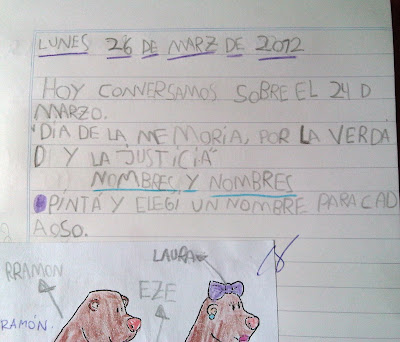 LUNES 26 DE MARZ DE 2012
HOY CONVERSAMOS SOBRE EL 24 D
MARZO.
"DÍA DE LA MEMORIA, POR LA VERDA
D Y LA "JUSTICIA"
NOMBRES Y NOMBRES
PINTÁ Y ELEGÍ UN NOMBRE PARA CAD
A OSO.
LAURA
RRAMON
EZE
RAMÓN.